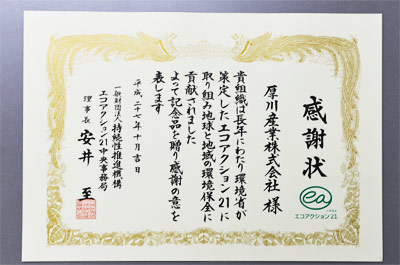 感謝状
ea
エコアクション21
厚川産業株式会社 様
貴組織は長年にわたり環境省が
策定したエコアクション21に
取り組み地球と地域の環境保全に
貢献されました
よって記念品を贈り感謝の意を
表します
平成二十七年十月吉日
一般財団法人 持続性推進機構
エコアクション21中央事務局
理事長 安井 至